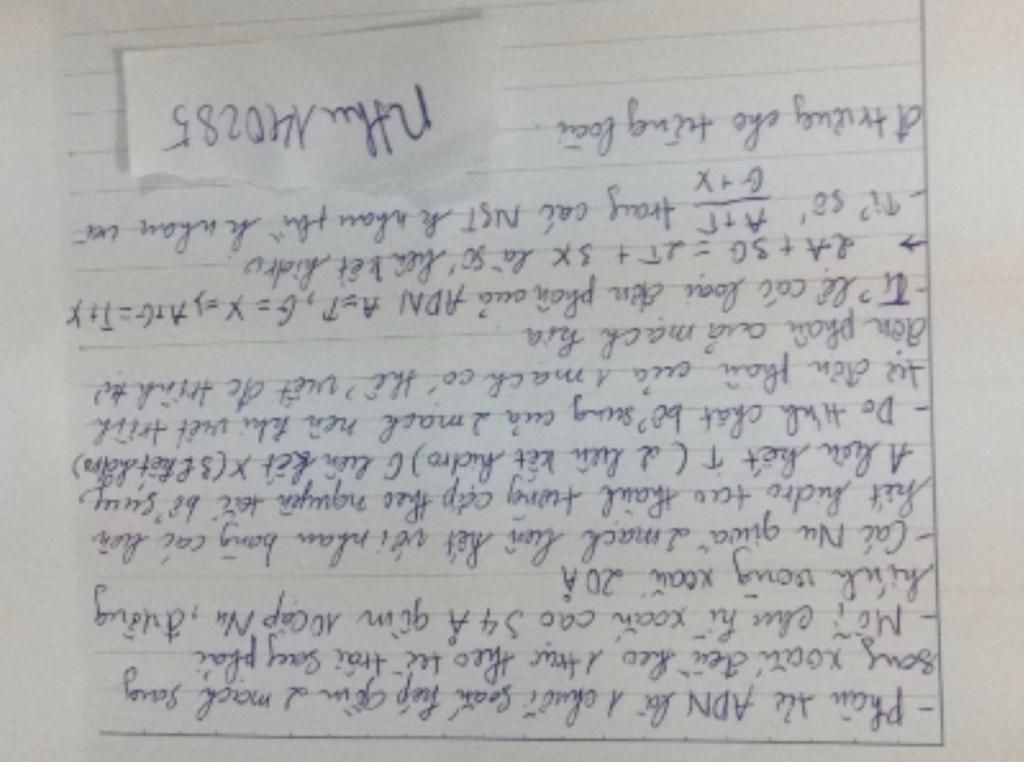 - Phân tử ADN là 1 chuỗi xoắn kép gồm 2 mạch song
song xoắn đều theo 1 trục theo từ trái sang phải
- Mỗi chu kì xoắn cao 34 Å gồm 10 cặp Nu, đường
kính vòng xoắn 20 Å
- Các Nu giữa 2 mạch liên kết với nhau bằng các liên
kết hidro tạo thành từng cặp theo nguyên tắc bổ sung,
A liên kết T (2 liên kết hidro) G liên kết X (3 lk hidro)
- Do tính chất bổ sung của 2 mạch nên khi viết trình
tự đơn phân của 1 mạch có thể viết đc trình tự
đơn phân của mạch kia
- Tỉ lệ các loại đơn phân của ADN A=T, G=X => A+G=T+X
→ 2A + 3G = 2T + 3X là số liên kết hidro
- Tỉ số A+T/G+X trong các NST k nhau thì k nhau và
đ trưng cho từng loài.
nthu140285